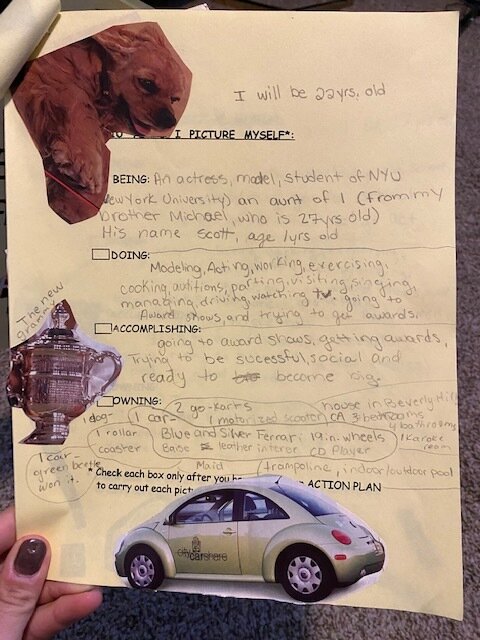 I will be 22yrs. old
I PICTURE MYSELF*:
BEING: An actress, model, student of NYU
New York University) an aunt of 1 (from my
brother Michael, who is 27yrs old)
His name Scott, age 1yrs old
DOING:
Modeling, Acting, working, exercising,
cooking, autitions, parting, visiting, singing,
managing, driving, watching tv. going to
Award shows, and trying to get awards.
The new
grammy
ACCOMPLISHING:
going to award shows, getting awards,
Trying to be sucessful, social and
ready to become big.
OWNING:
2 go-karts
house in Beverly Hills
1 dog-
1 car-
1 motorized scooter
CA 3 bedrooms
4 bathrooms
1 rollar
coaster
Blue and Silver Ferrari 19.in. wheels
1 Karoke
room
Baise leather interor CD Player
1 car-
green beetle
won it.
Maid
trampoline, indoor/outdoor pool
* Check each box only after you
ACTION PLAN
to carry out each
citycarshare